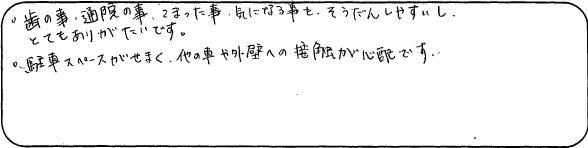 。歯の事、通院の事、こまった事、気になる事も、そうだんしやすいし、
とてもありがたいです。
。駐車スペースがせまく、他の車や外壁への接触が心配です。